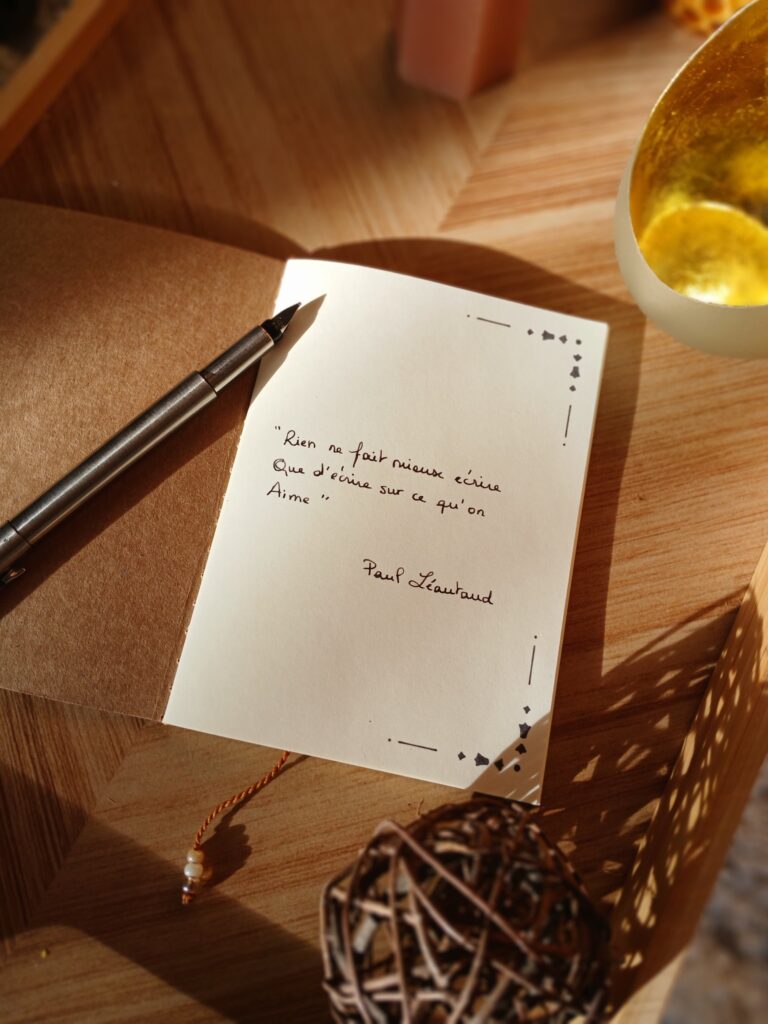 "Rien ne fait mieux écrire
Que d'écrire sur ce qu'on
Aime"
Paul Léautaud